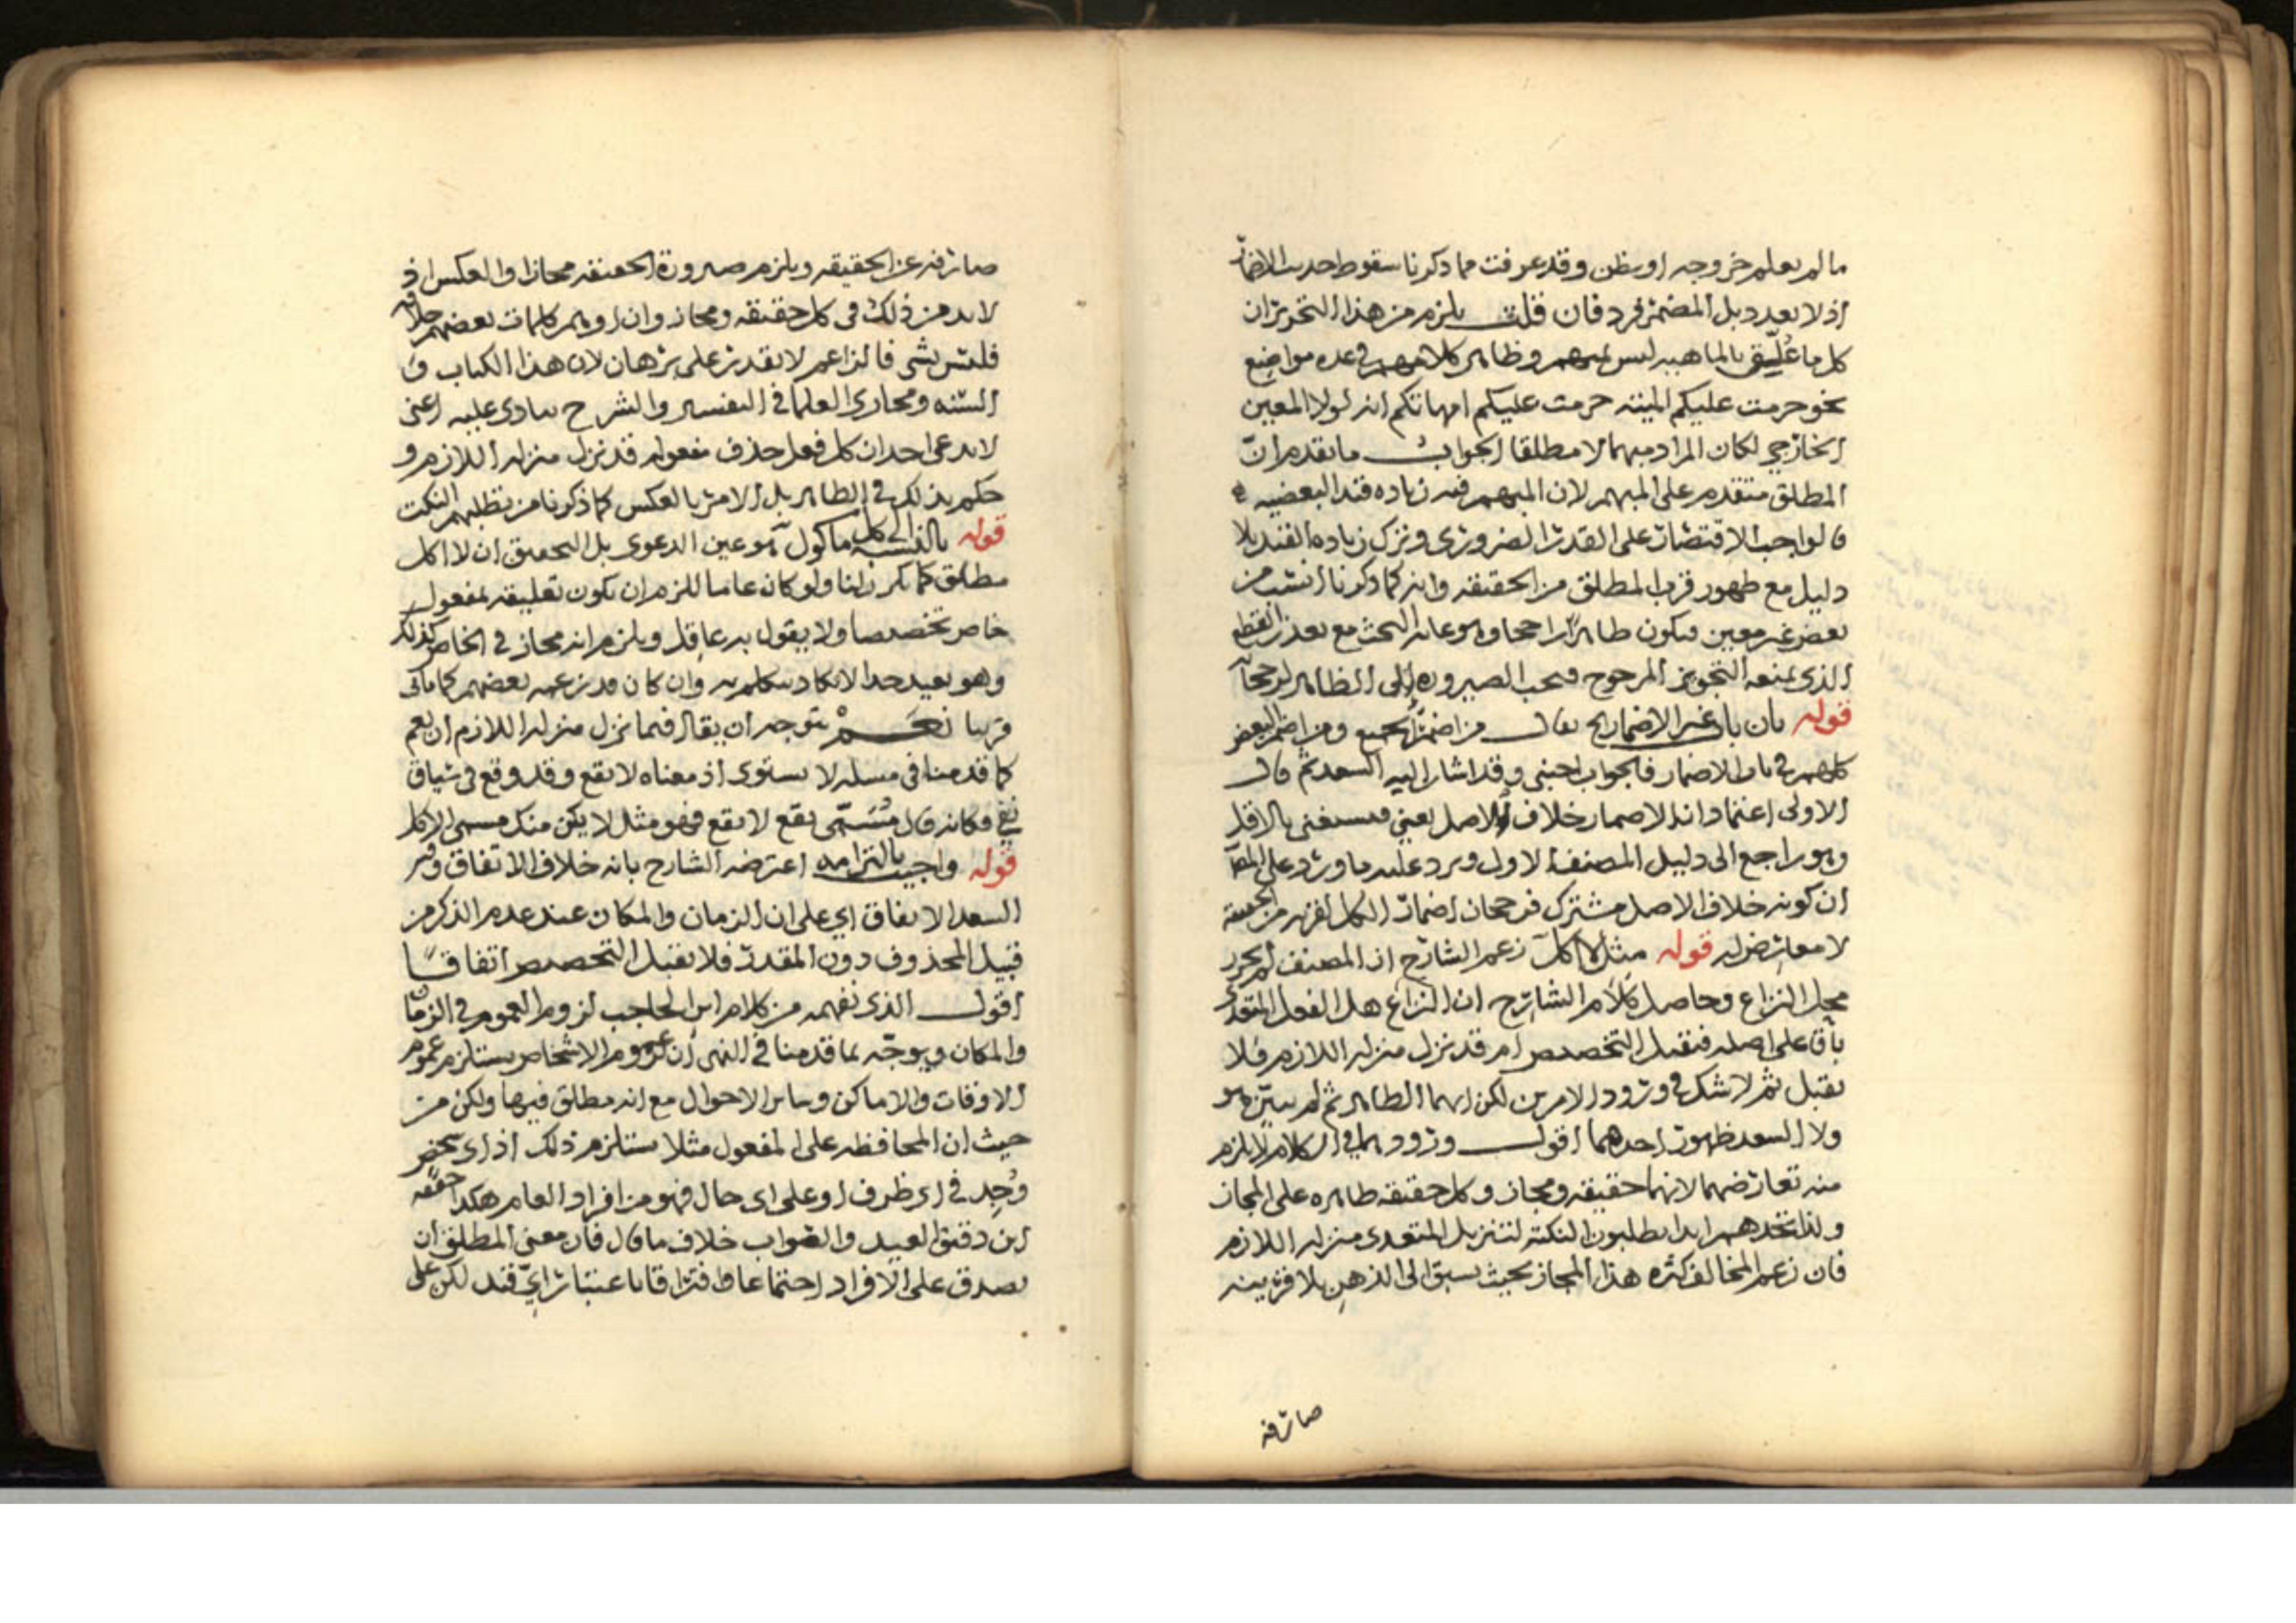 ما لم يعلم خروجه او يظن وقد عرفت مما ذكرنا سقوط حديث الاضمار
اذ لا تعدد بل المضمر فرد فان قلت يلزم من هذا التحرير ان
كل ما عُلِّق بالماهيه ليس بمبهم وظاهر كلامهم في عده مواضع
نحو حرمت عليكم الميته حرمت عليكم امهاتكم انه لولا المعين
الخارجي لكان المراد مبهما لا مطلقا الجواب ما تقدم انّ
المطلق متقدم على المبهم لان المبهم فيه زياده قيد البعضيه
فالواجب الاقتصار على القدر الضروري وترك زياده القيد بلا
دليل مع ظهور قرب المطلق من الحقيقه وانه كما ذكرنا انسب من
بعض غير معين فيكون ظاهرًا راجحا وهو غايه البحث مع تعذر القطع
الذي يمنعه التجويز المرجوح فيجب الصيروره الى الظاهر لرجحانه
قوله بان باب غير الاضمار الخ يقال من اضمر الجميع ومن اضمر البعض
كلهم في باب الاضمار فالجواب اجنبي وقد اشار اليه السعد ثم قال
الاولى اعتماد ان الاضمار خلاف الاصل يعني فيستغنى بالاقل
وهو راجع الى دليل المصنف الاول ويرد عليه ما ورد على
ان كونه خلاف الاصل مشترك فرجحان اضمار الكل لقربه من الحقيقه
لا معارض له قوله مثل لا اكل زعم الشارح ان المصنف لم يحرر
محل النزاع وحاصل كلام الشارح ان النزاع هل الفعل المتعدي
باق على اصله فيقبل التخصيص ام قد نزل منزله اللازم فلا
يقبل ثم لا شك في ورود الامرين لكن ايهما الظاهر ثم لم يبيّن هو
ولا السعد ظهور احدهما اقول ورودهما في الكلام لا يلزم
منه تعارضهما لانهما حقيقه ومجاز وكل حقيقه ظاهره على المجاز
ولذا تجدهم ابدا يطلبون النكته لتنزيل المتعدي منزله اللازم
فان زعم المخالف كثره هذا المجاز بحيث يسبق الى الذهن بلا قرينه
صارفه
صارفه عن الحقيقه ويلزم صيرورة الحقيقه مجازا والعكس اذ
لا بد من ذلك في كل حقيقه ومجاز وان اوهم كلمات بعضهم خلافه
فليس بشي فالزاعم لا يقدر على برهان لان هذا الكتاب و
السنه ومجاري العلما في التفسير والشرح ينادي عليه اعني
لا يدعي احد ان كل فعل حذف مفعوله قد نزل منزله اللازم و
حكم بذلك في الظاهر بل الامر بالعكس كما ذكرنا من تطلبهم النكت
قوله بالنسبه الى كل ماكول هو عين الدعوى بل التحقيق ان لا اكل
مطلق كما كررنا ولو كان عاما للزم ان يكون تعليقه بمفعول
خاص تخصيصا ولا يقول به عاقل ويلزم انه مجاز في الخاص كذلك
وهو بعيد جدا لا يكاد يتكلم به وان كان قد زعمه بعضهم كما ياتي
قريبا نعم يتوجه ان يقال فيما نزل منزله اللازم ان يعم
كما قدمنا في مسله لا يستوي اذ معناه لا يقع وقد وقع في سياق
نفي فكانه قال مُسَمّى يقع لا يقع فهو مثل لا يكن منك مسمى الاكل
قوله واجيب بالتزامه اعترضه الشارح بانه خلاف الاتفاق وفسر
السعد الاتفاق اي على ان الزمان والمكان عند عدم الذكر من
قبيل المحذوف دون المقدر فلا يقبل التخصيص اتفاقًا
اقول الذي نفهمه من كلام ابن الحاجب لزوم العموم في الزمان
والمكان ويوجّه بما قدمنا في النهي ان عموم الاشخاص يستلزم عموم
الاوقات والاماكن وساير الاحوال مع انه مطلق فيها ولكن من
حيث ان المحافظه على المفعول مثلا يستلزم ذلك اذ اي شخص
وُجِد في اي ظرف او على اي حال فهو من افراد العام هكذا حققه
ابن دقيق العيد والصواب خلاف ما قال فان معنى المطلق ان
يصدق على الافراد اجتماعا وافتراقا باعتبار ايّ قيد لكن على